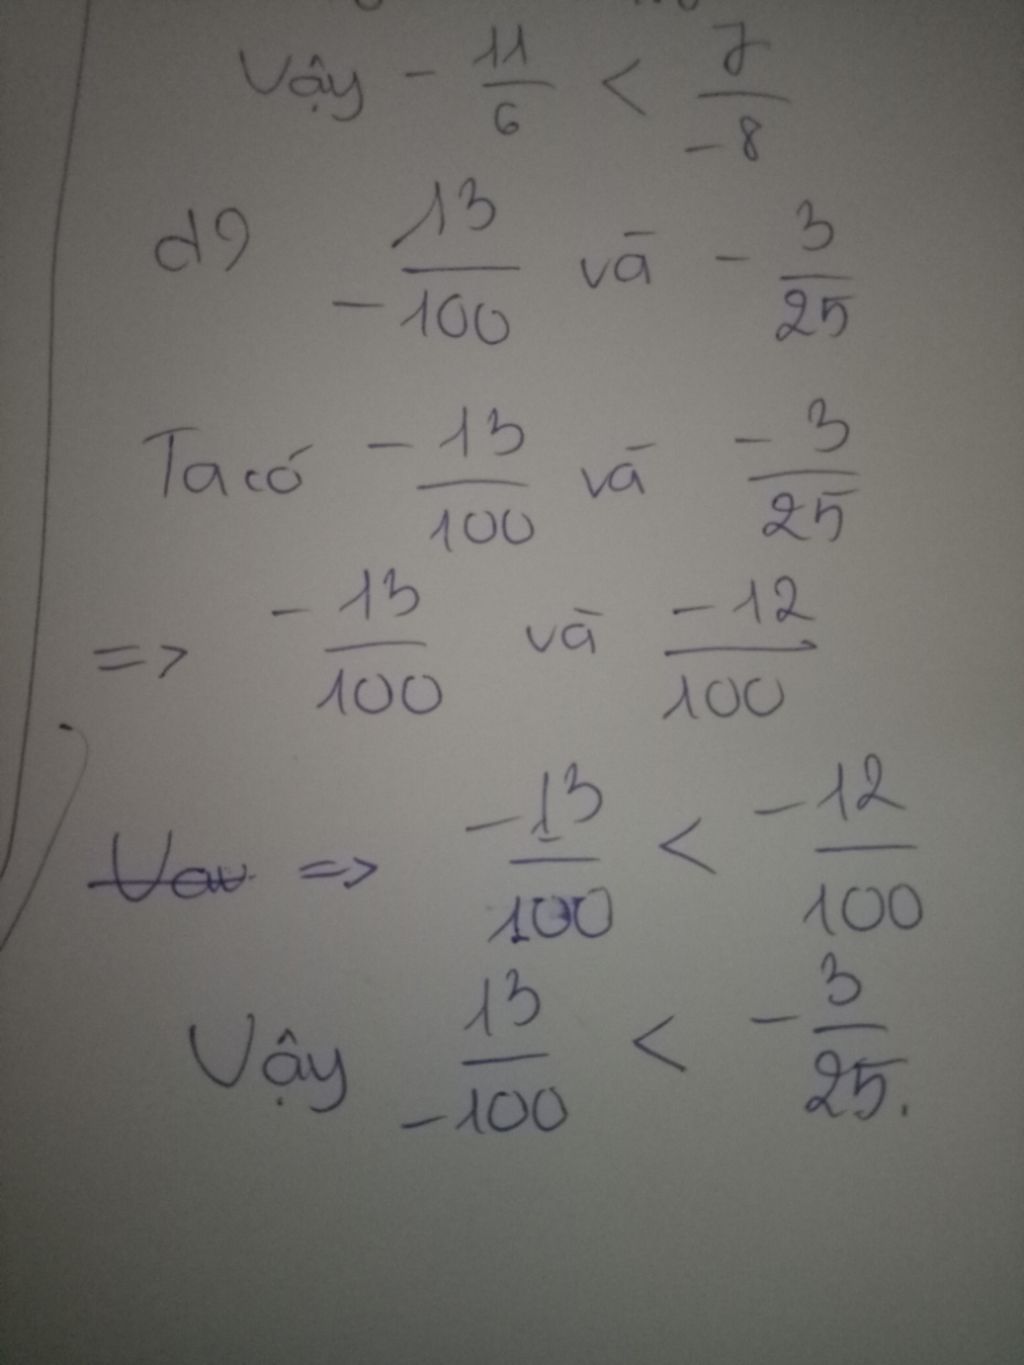 Vậy - 11/6 < 7/-8
d) 13/-100 và - 3/25
Ta có -13/100 và -3/25
=> -13/100 và -12/100
=> -13/100 < -12/100
Vậy 13/-100 < - 3/25.